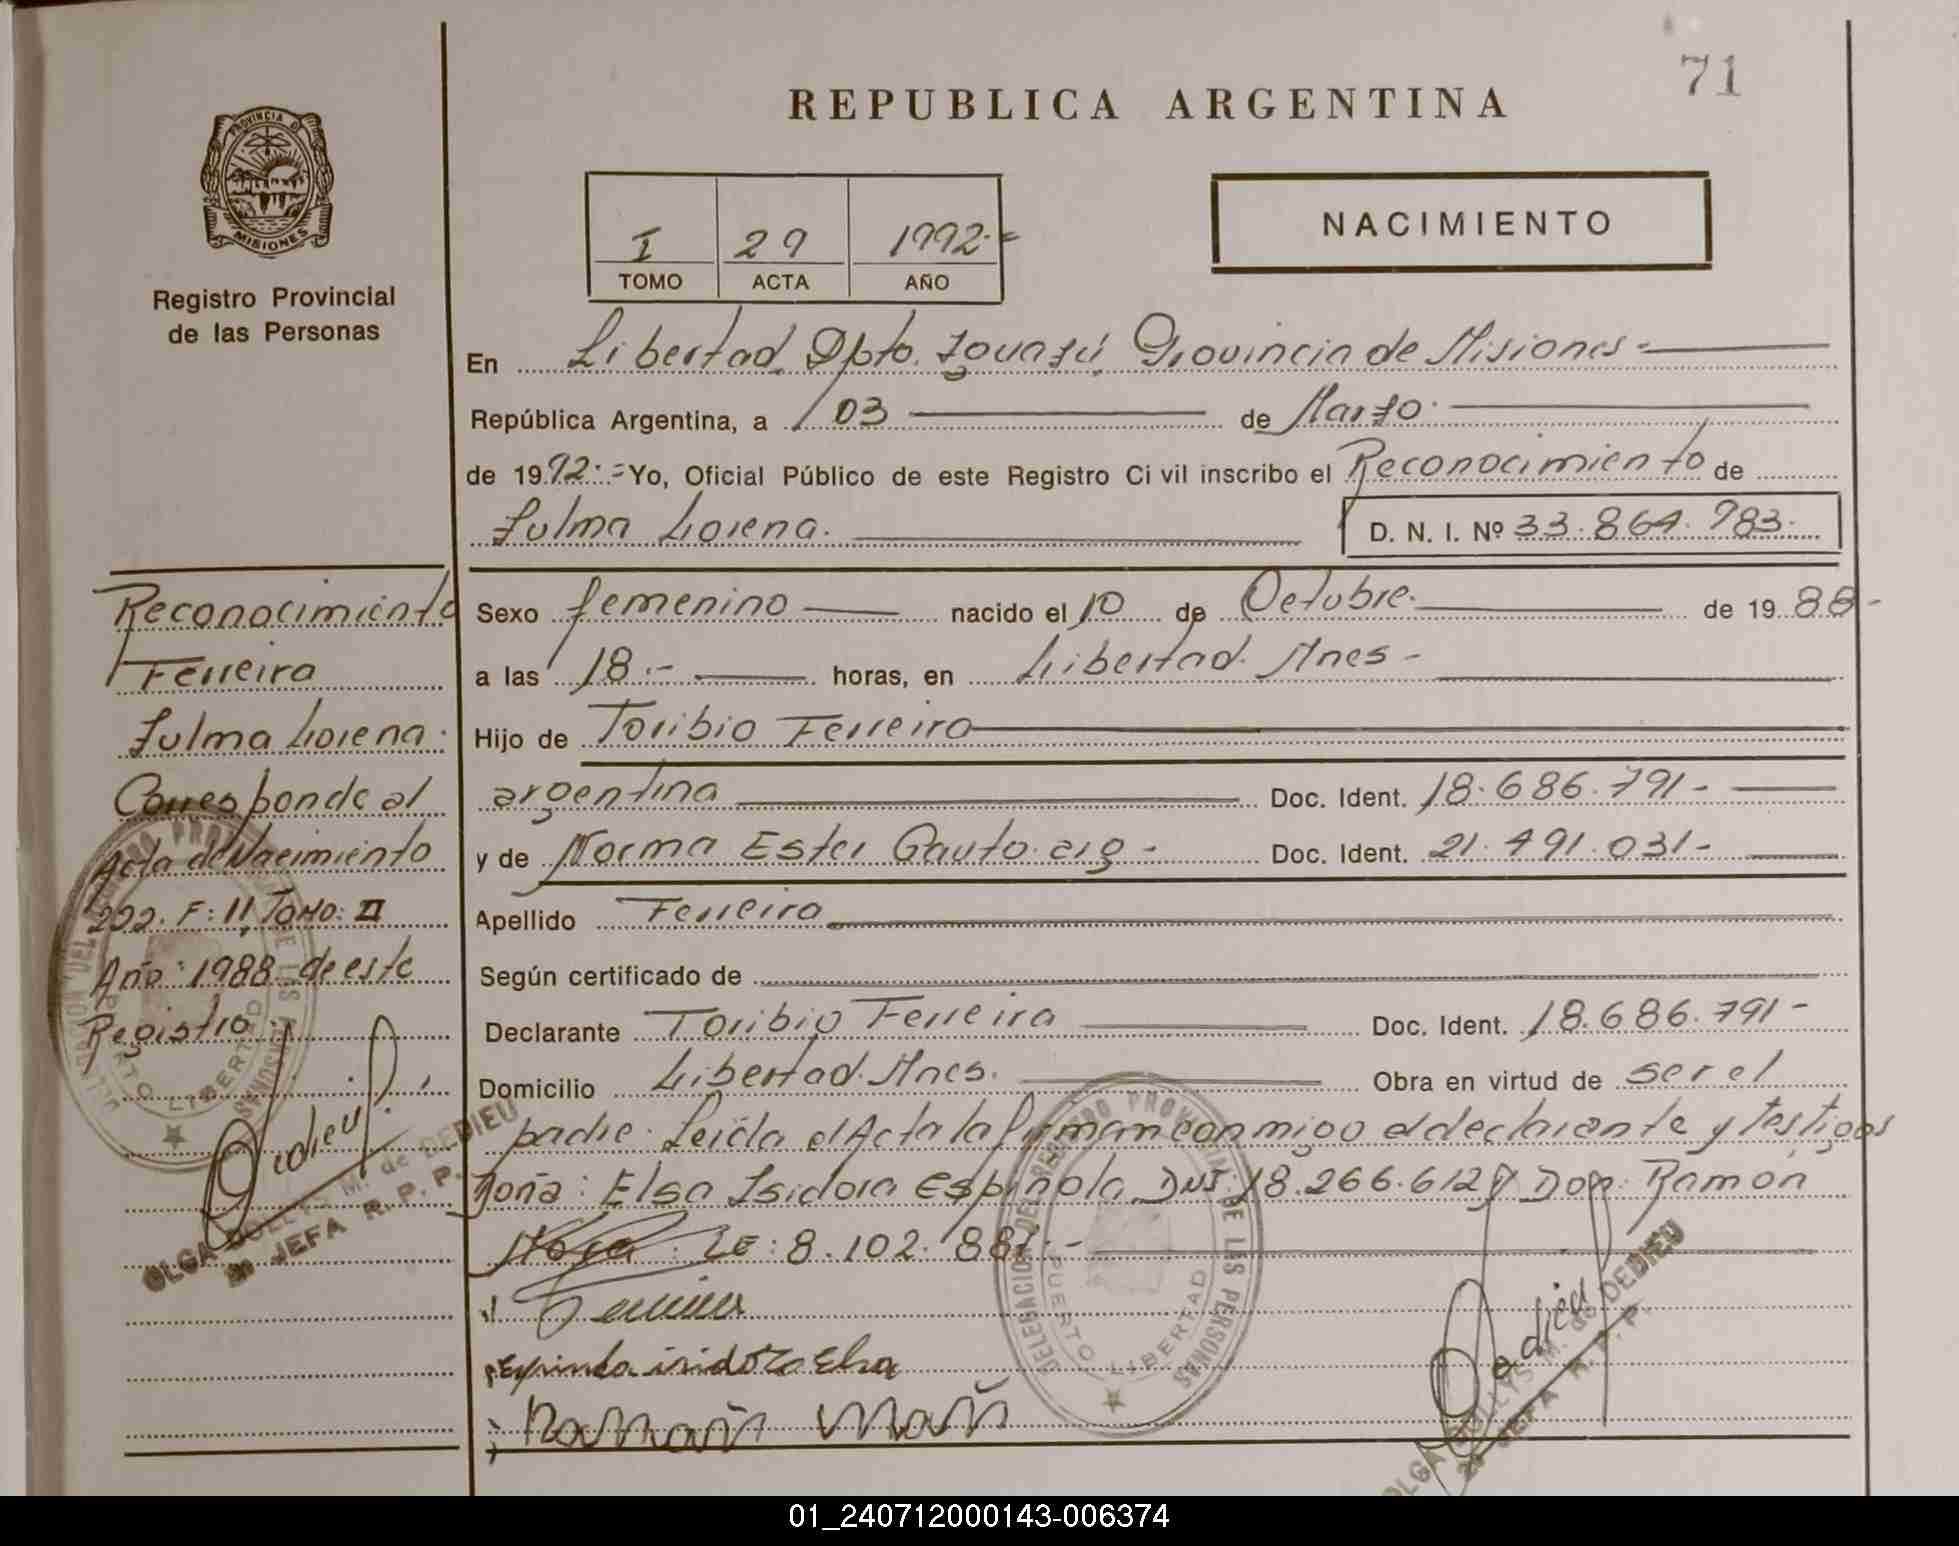 71
REPUBLICA ARGENTINA
PROVINCIA D
MISIONES
Registro Provincial
de las Personas
I 29 1992.=
TOMO ACTA AÑO
NACIMIENTO
En Libertad Dpto. Iguazú Provincia de Misiones.-
República Argentina, a 03 de Marzo.
de 1992.= Yo, Oficial Público de este Registro Civil inscribo el Reconocimiento de
Zulma Lorena. D. N. I. Nº 33.864.983.
Sexo femenino nacido el 10 de Octubre. de 1988-
a las 18.- horas, en Libertad. Mnes-
Hijo de Toribio Ferreira
argentina Doc. Ident. 18.686.791-
y de Norma Ester Gauto. arg- Doc. Ident. 21.491.031-
Apellido Ferreira
Según certificado de
Declarante Toribio Ferreira Doc. Ident. 18.686.791-
Domicilio Libertad. Mnes. Obra en virtud de ser el
padre. Leída el Acta la firman conmigo el declarante y testigos
Doña: Elsa Isidora Espinola DNI: 18.266.612 y Don. Ramón
LE: 8.102.887.-
Espinola isidora Elsa
Reconocimiento
Ferreira
Zulma Lorena.
Corresponde al
Acta de Nacimiento
222. F: 11 TOMO: II
Año: 1988 de este
Registro.
DELEGACION DEL REGISTRO PROVINCIAL DE LAS PERSONAS
PUERTO LIBERTAD
Dedieu
OLGA M. de DEDIEU
JEFA R. P. P.
DELEGACION DEL REGISTRO PROVINCIAL DE LAS PERSONAS
PUERTO LIBERTAD
Dedieu
OLGA M. de DEDIEU
JEFA R. P. P.
01_240712000143-006374